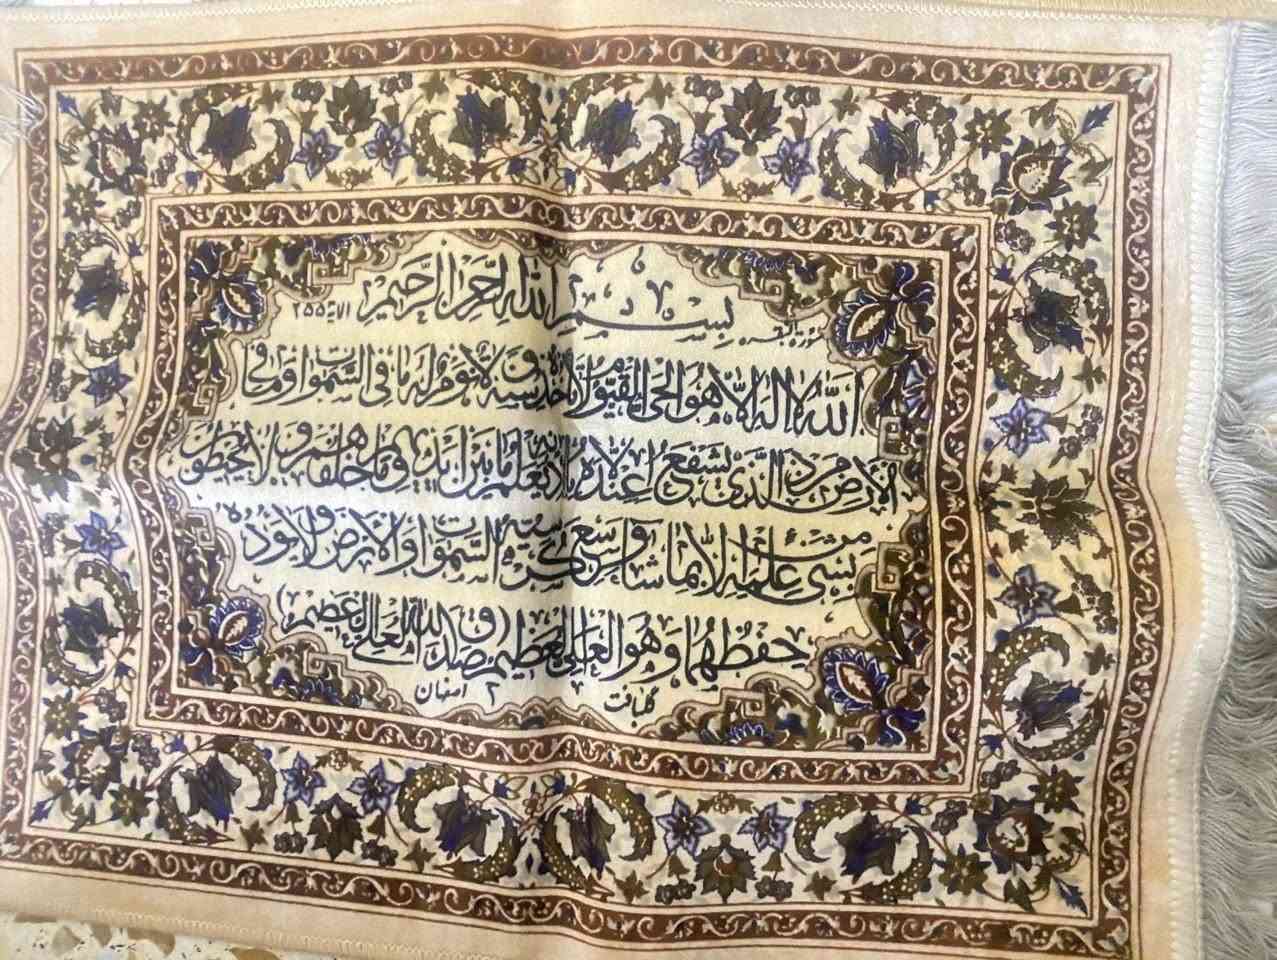 سورة البقرة بِسْمِ اللهِ الرَّحْمنِ الرَّحيمِ الاية ٢٥٥
اَللهُ لا اِلهَ اِلاّ هُوَ الْحَىُّ الْقَيُّومُ لا تَأْخُذُهُ سِنَةٌ وَلا نَوْمٌ لَهُ ما فِى السَّمواتِ وَما فِى
الْاَرْضِ مَنْ ذَا الَّذى يَشْفَعُ عِنْدَهُ اِلاّ بِاِذْنِهِ يَعْلَمُ ما بَيْنَ اَيْديهِمْ وَما خَلْفَهُمْ وَلا يُحيطُونَ
بِشَىْءٍ مِنْ عِلْمِهِ اِلاّ بِما شاءَ وَسِعَ كُرْسِيُّهُ السَّمواتِ وَالْاَرْضَ وَلا يَؤُدُهُ
حِفْظُهُما وَهُوَ الْعَلِىُّ الْعَظيمُ (صَدَقَ اللهُ الْعَلِىُّ الْعَظيمُ)
گلبافت ۲ اصفهان